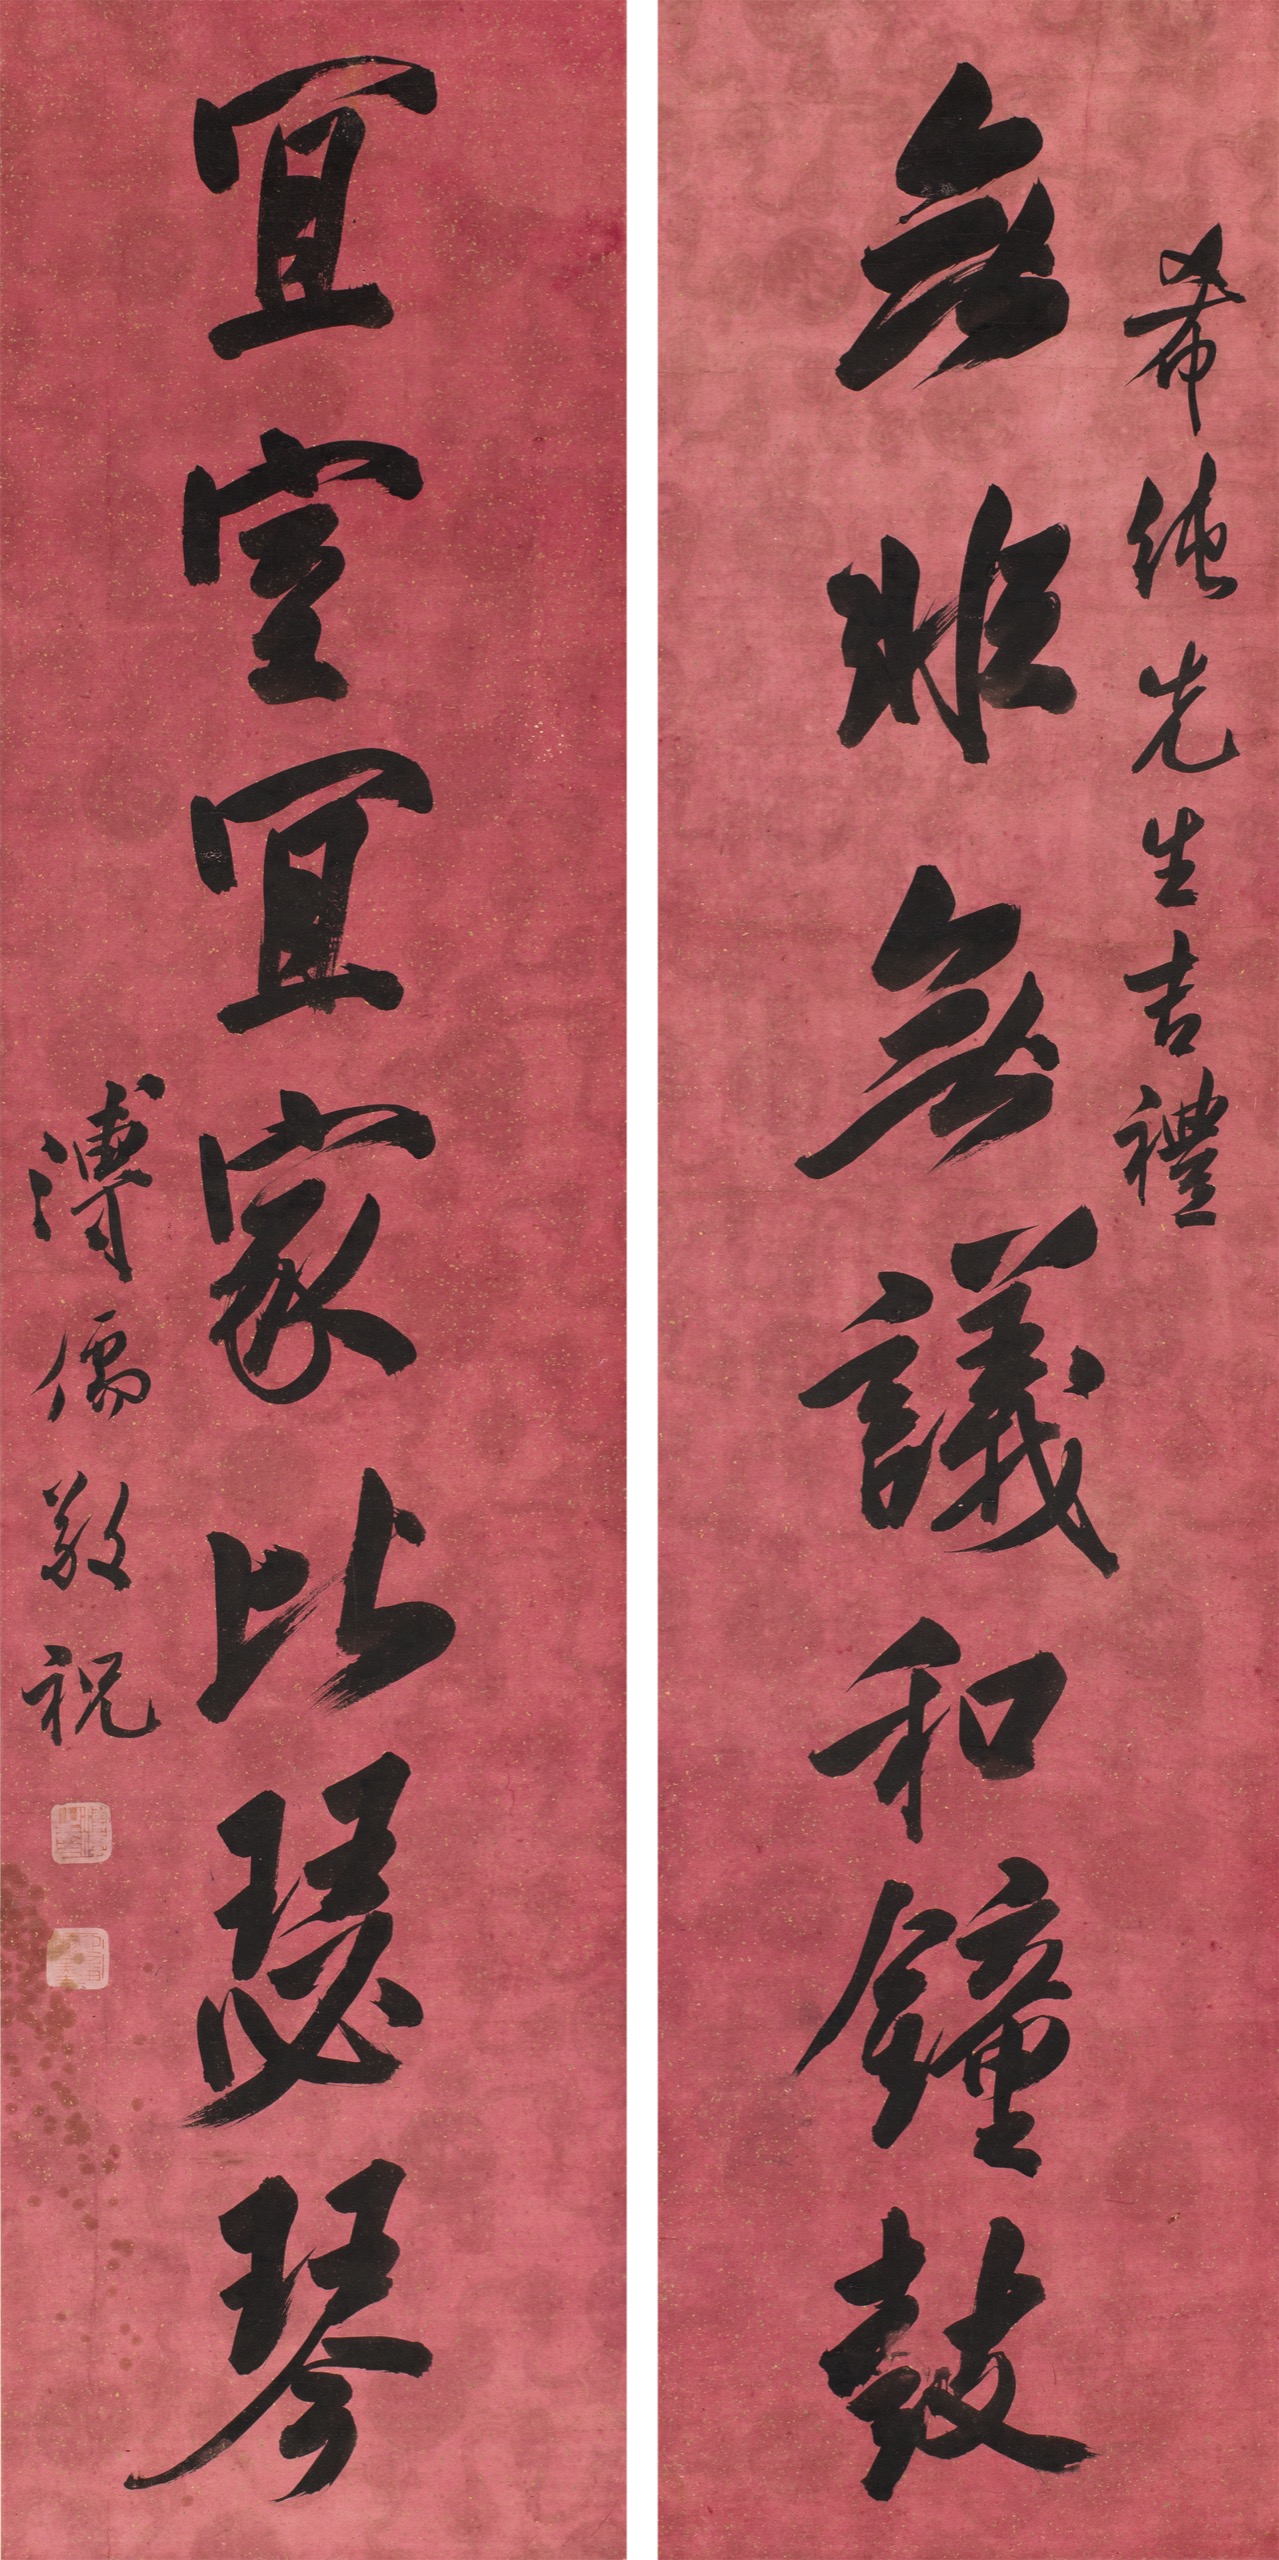 希純先生吉禮
無非無議和鐘鼓
宜室宜家比瑟琴
溥儒敬祝